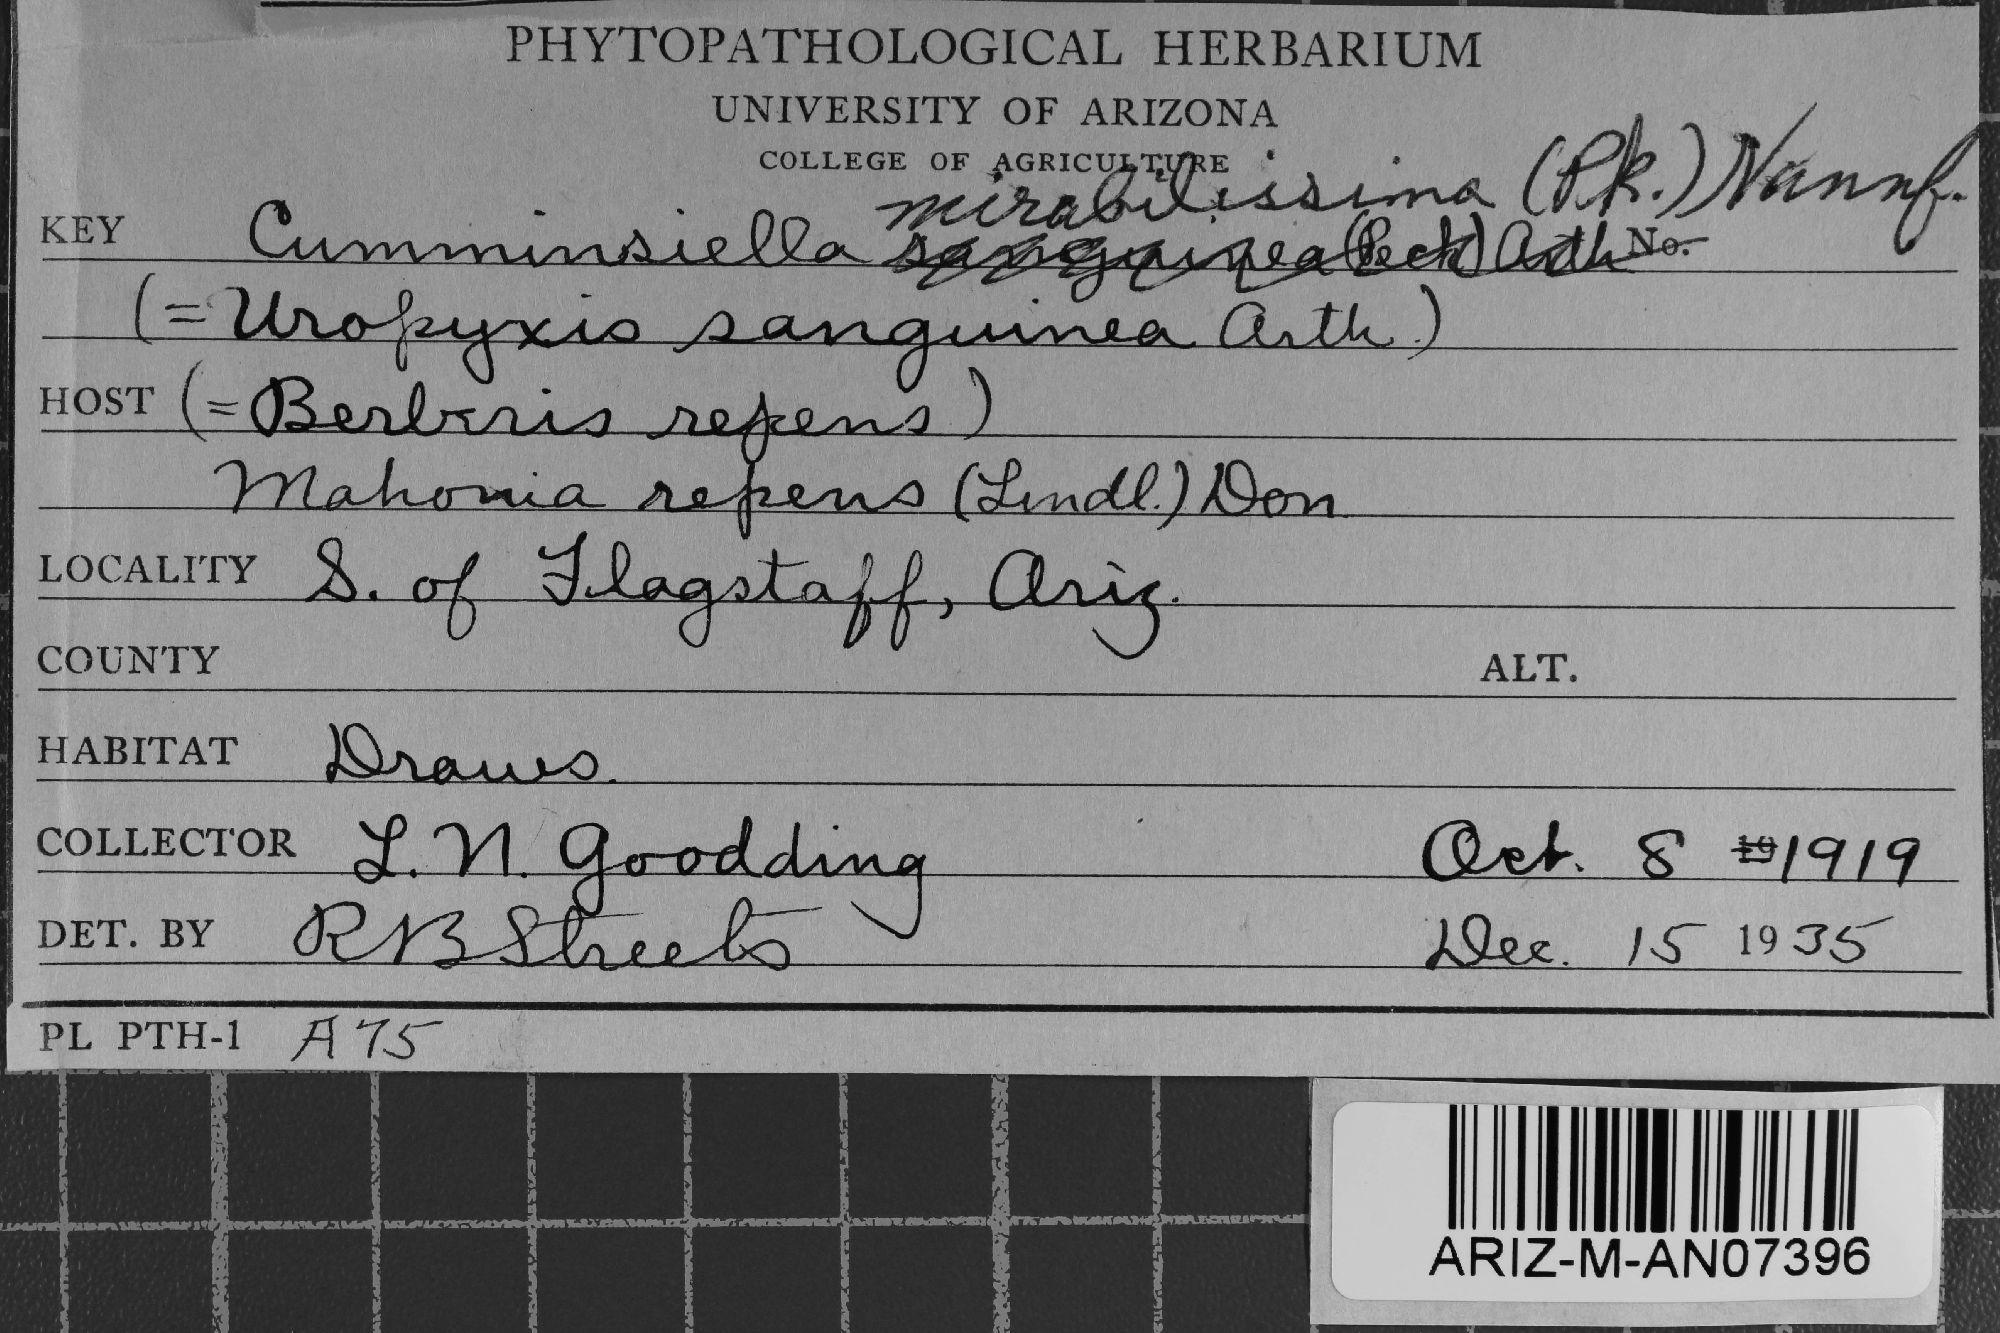 PHYTOPATHOLOGICAL HERBARIUM
UNIVERSITY OF ARIZONA
COLLEGE OF AGRICULTURE
mirabilissima (Pk.) Nannf.
KEY Cumminsiella sanguinea (Peck) Arth No.
(= Uropyxis sanguinea Arth.)
HOST (= Berberis repens)
Mahonia repens (Lindl.) Don
LOCALITY S. of Flagstaff, Ariz.
COUNTY ALT.
HABITAT Draws.
COLLECTOR L. N. Goodding Oct. 8 19 1919
DET. BY RB Streets Dec. 15 1935
PL PTH-1 A75
ARIZ-M-AN07396